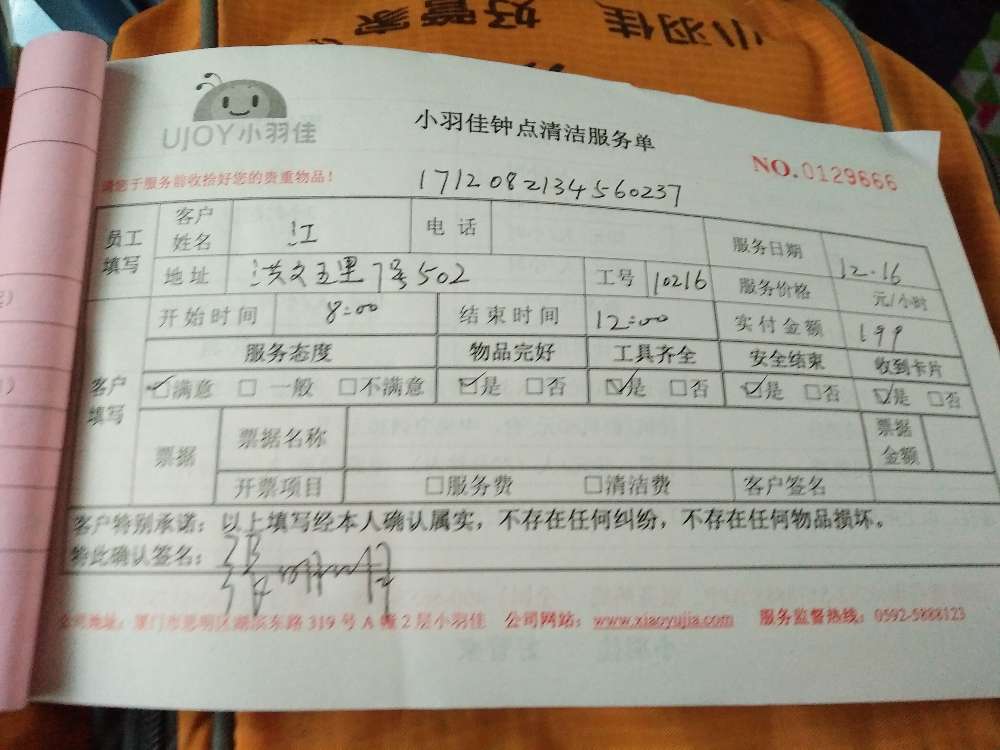 小羽佳 好管家
UJOY小羽佳
小羽佳钟点清洁服务单
NO.0129666
请您于服务前收拾好您的贵重物品!
1712082134560237
员工填写 客户姓名 江 电话 服务日期 12.16
地址 洪文五里7号502 工号 10216 服务价格 元/小时
开始时间 8:00 结束时间 12:00 实付金额 199
客户填写 服务态度 物品完好 工具齐全 安全结束 收到卡片
☑满意 □一般 □不满意 ☑是 □否 ☑是 □否 ☑是 □否 ☑是 □否
票据 票据名称 票据金额
开票项目 □服务费 □清洁费 客户签名
客户特别承诺：以上填写经本人确认属实，不存在任何纠纷，不存在任何物品损坏。
特此确认签名：
公司地址：厦门市思明区湖滨东路319号A幢2层小羽佳 公司网站：www.xiaoyujia.com 服务监督热线：0592-5888123